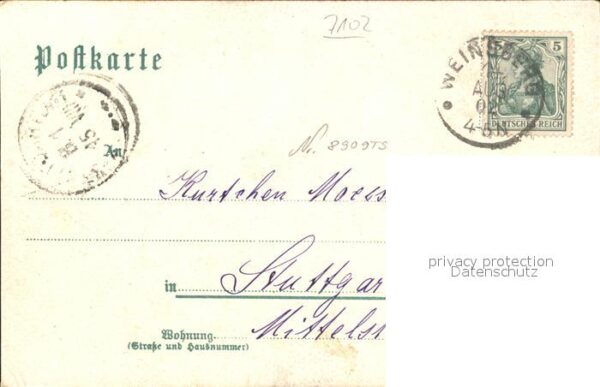 7102
Postkarte
WEINSBERG
AUG
02
4-5 N
5
DEUTSCHES REICH
An
No. 8909TS
Kurtchen Moess
privacy protection
Datenschutz
in Stuttgar
Mittelst
Wohnung
(Straße und Hausnummer)